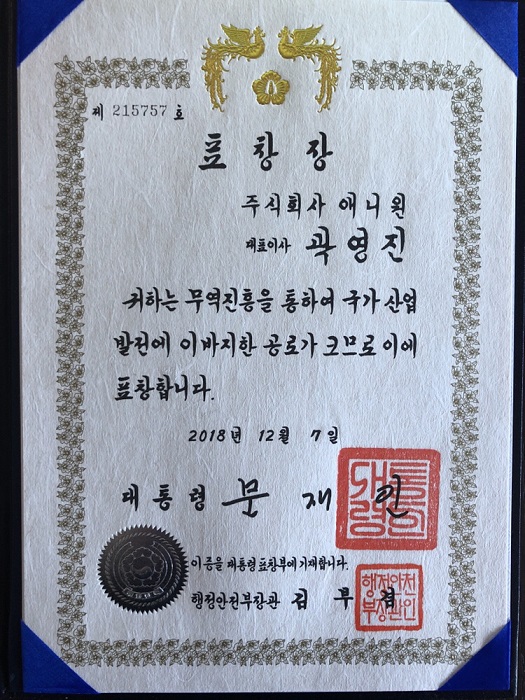 제 215757 호
표 창 장
주식회사 애니원
대표이사 곽영진
귀하는 무역진흥을 통하여 국가 산업
발전에 이바지한 공로가 크므로 이에
표창합니다.
2018년 12월 7일
대통령 문 재 인
이 증을 대통령 표창부에 기재합니다.
행정안전부장관 김 부 겸